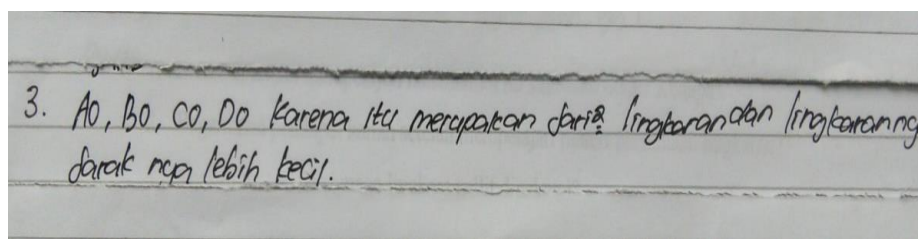 3. AO, BO, CO, DO Karena itu merupakan jari2 lingkaran dan lingkaranng
jarak nya lebih kecil.